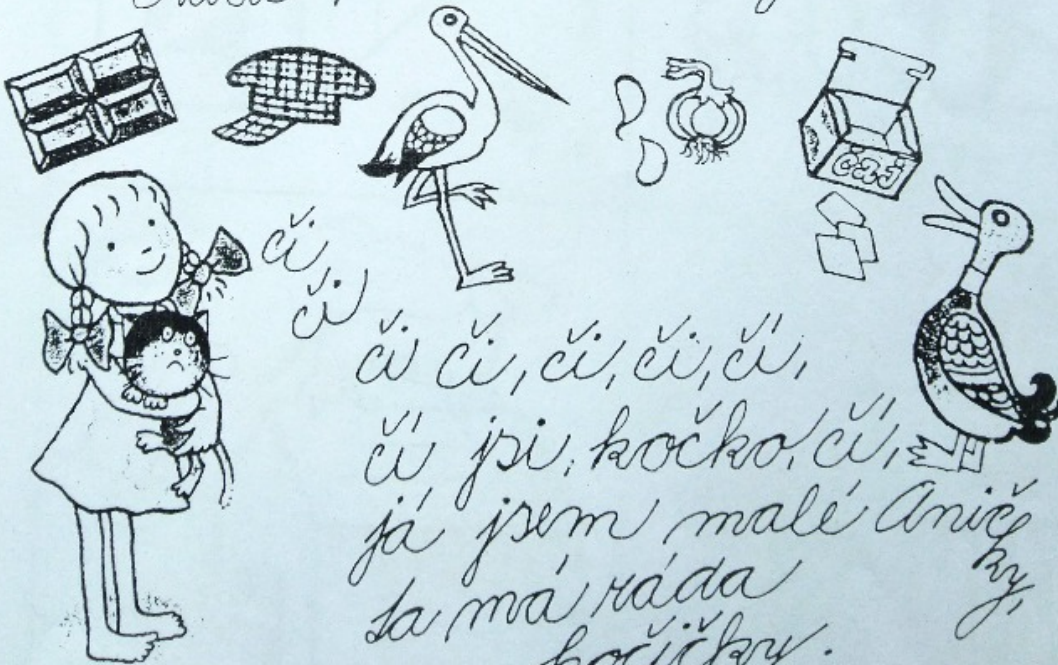 čaj
či,
či
či či, či, či, čí,
čí jsi, kočko, čí,
já jsem malé Anič
ky,
ta má ráda
kočičky.